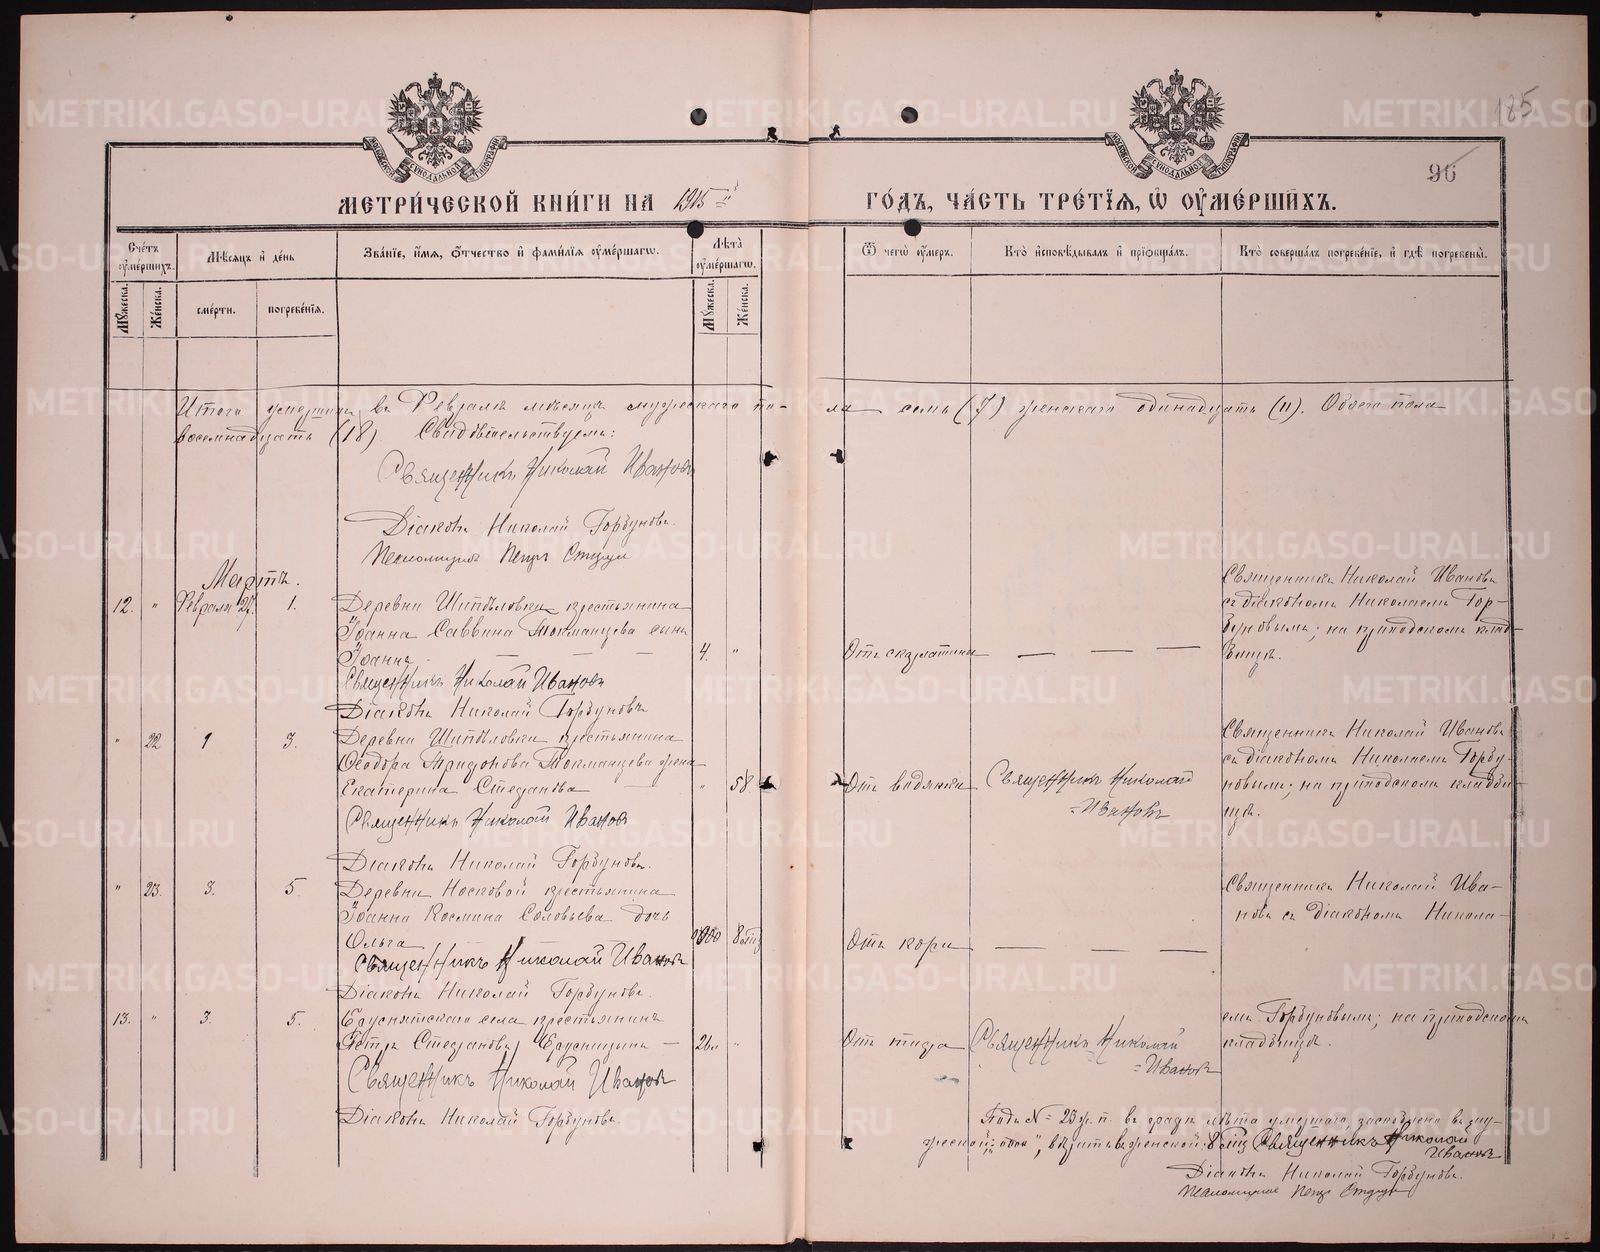 METRIKI.GASO-URAL.RU
185
96
МЕТРИЧЕСКОЙ КНИГИ НА 1915 й
ГОДЪ, ЧАСТЬ ТРЕТІЯ, Ѿ ОУМЕРШИХЪ.
Счетъ оумершихъ.
Мѣсяцъ и день
Званіе, имя, отчество и фамилія оумершагѡ.
Лѣта оумершагѡ.
Ѿ чегѡ оумеръ.
Кто исповѣдывалъ и пріобщалъ.
Кто совершалъ погребеніе, и гдѣ погребены.
Мужеска.
Женска.
смерти.
погребенія.
Мужеска.
Женска.
Итого умершихъ въ Февралѣ мѣсяцѣ мужескаго по-
ла семь (7) женскаго одинадцать (11). Обоего пола
восемнадцать (18) Свидѣтельствуемъ:
Священникъ Николай Ивановъ
Діаконъ Николай Горбуновъ.
Псаломщикъ Петръ
Мартъ.
12. " Февраля 27. 1. Деревни Шипѣловки крестьянина
Іоанна Саввина Токманцева сынъ
Іоаннъ 4. "
Отъ скарлатины
Священникъ Николай Ивановъ
съ діакономъ Николаемъ Гор-
буновымъ; на приходскомъ клад-
бищѣ.
Священникъ Николай Ивановъ
Діаконъ Николай Горбуновъ
" 22 1 3. Деревни Шипѣловки крестьянина
Ѳеодора Токманцева жена
Екатерина Стефанова " 58
Отъ водянки
Священникъ Николай
=Ивановъ
Священникъ Николай Ивановъ
съ діакономъ Николаемъ Горбу-
новымъ; на приходскомъ кладби-
щѣ.
Священникъ Николай Ивановъ
Діаконъ Николай Горбуновъ.
" 23. 3. 5. Деревни Носковой крестьянина
Іоанна Космина Соловьева дочь
Ольга 8
Отъ кори
Священникъ Николай Ива-
новъ съ діакономъ Никола-
Священникъ Николай Ивановъ
Діаконъ Николай Горбуновъ.
13. " 3. 5. Бруснятскаго села крестьянинъ
Петръ Стефановъ Брусницынъ 26л "
Отъ тифа
Священникъ Николай
=Ивановъ
емъ Горбуновымъ; на приходскомъ
кладбищѣ.
Священникъ Николай Ивановъ
Діаконъ Николай Горбуновъ.
Подъ № 23 ж. п. въ графѣ лѣта умершаго въ му-
жеской: женской: 8 Священникъ Николай
Ивановъ
Діаконъ Николай Горбуновъ.
Псаломщикъ Петръ